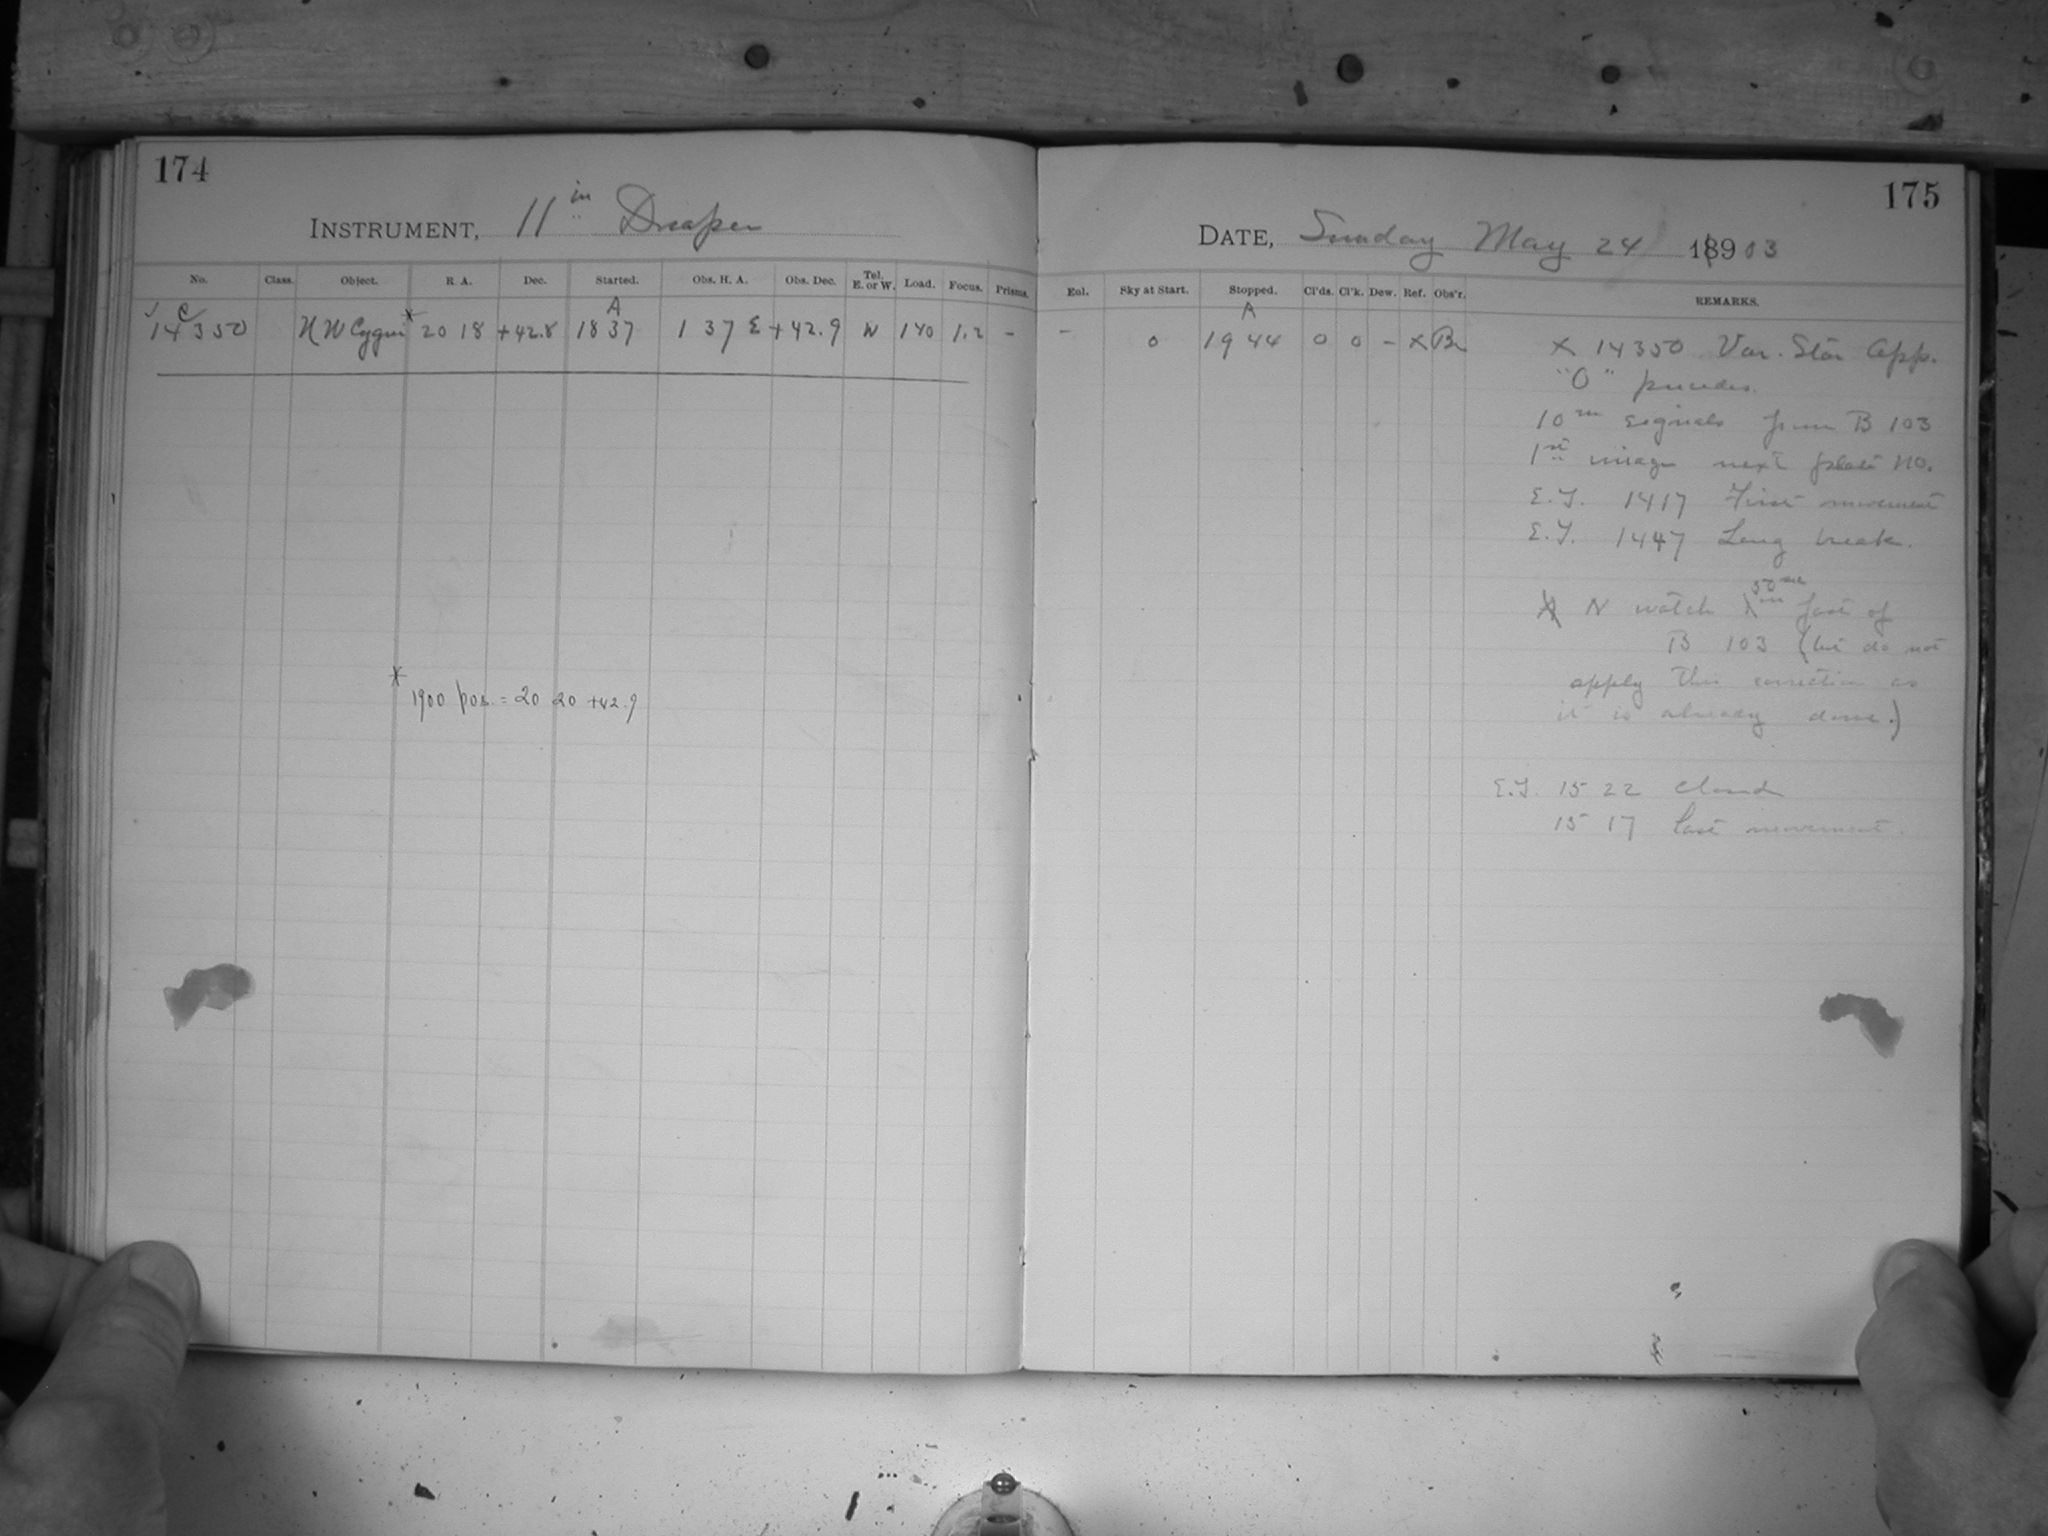 174
INSTRUMENT, 11 in Draper
No. Class. Object. R A. Dec. Started. Obs. H. A. Obs. Dec. Tel. E. or W. Load. Focus. Prisms.
A
C 14350 W Cygni * 20 18 +42.8 18 37 1 37 E +42.9 W 140 1.2 -
* 1900 pos. = 20 20 +42.9
175
DATE, Sunday May 24 1903
Enl. Sky at Start. Stopped. Cl'ds. Cl'k. Dew. Ref. Obs'r. REMARKS.
A
- 0 19 44 0 0 - X Br
X 14350 Var. Star App.
"O" precedes.
10 m signals from B 103
1st image next plate no.
E.T. 1417 First movement
E.T. 1447 Long break.
N watch 50 sec fast of
B 103 (but do not
apply this correction as
it is already done.)
E.T. 15 22 closed
15 17 last movement.